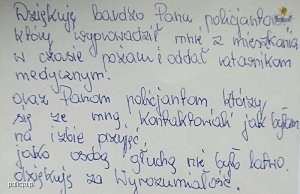 Dziękuję bardzo Panu policjantowi
który wyprowadził mnie z mieszkania
w czasie pożaru i oddał ratownikom
medycznym.
oraz Panom policjantom którzy
się ze mną kontaktowali jak byłam
na izbie przyjęć
jako osobą głuchą nie było łatwo
dziękuję za wyrozumiałość.
policja.pl